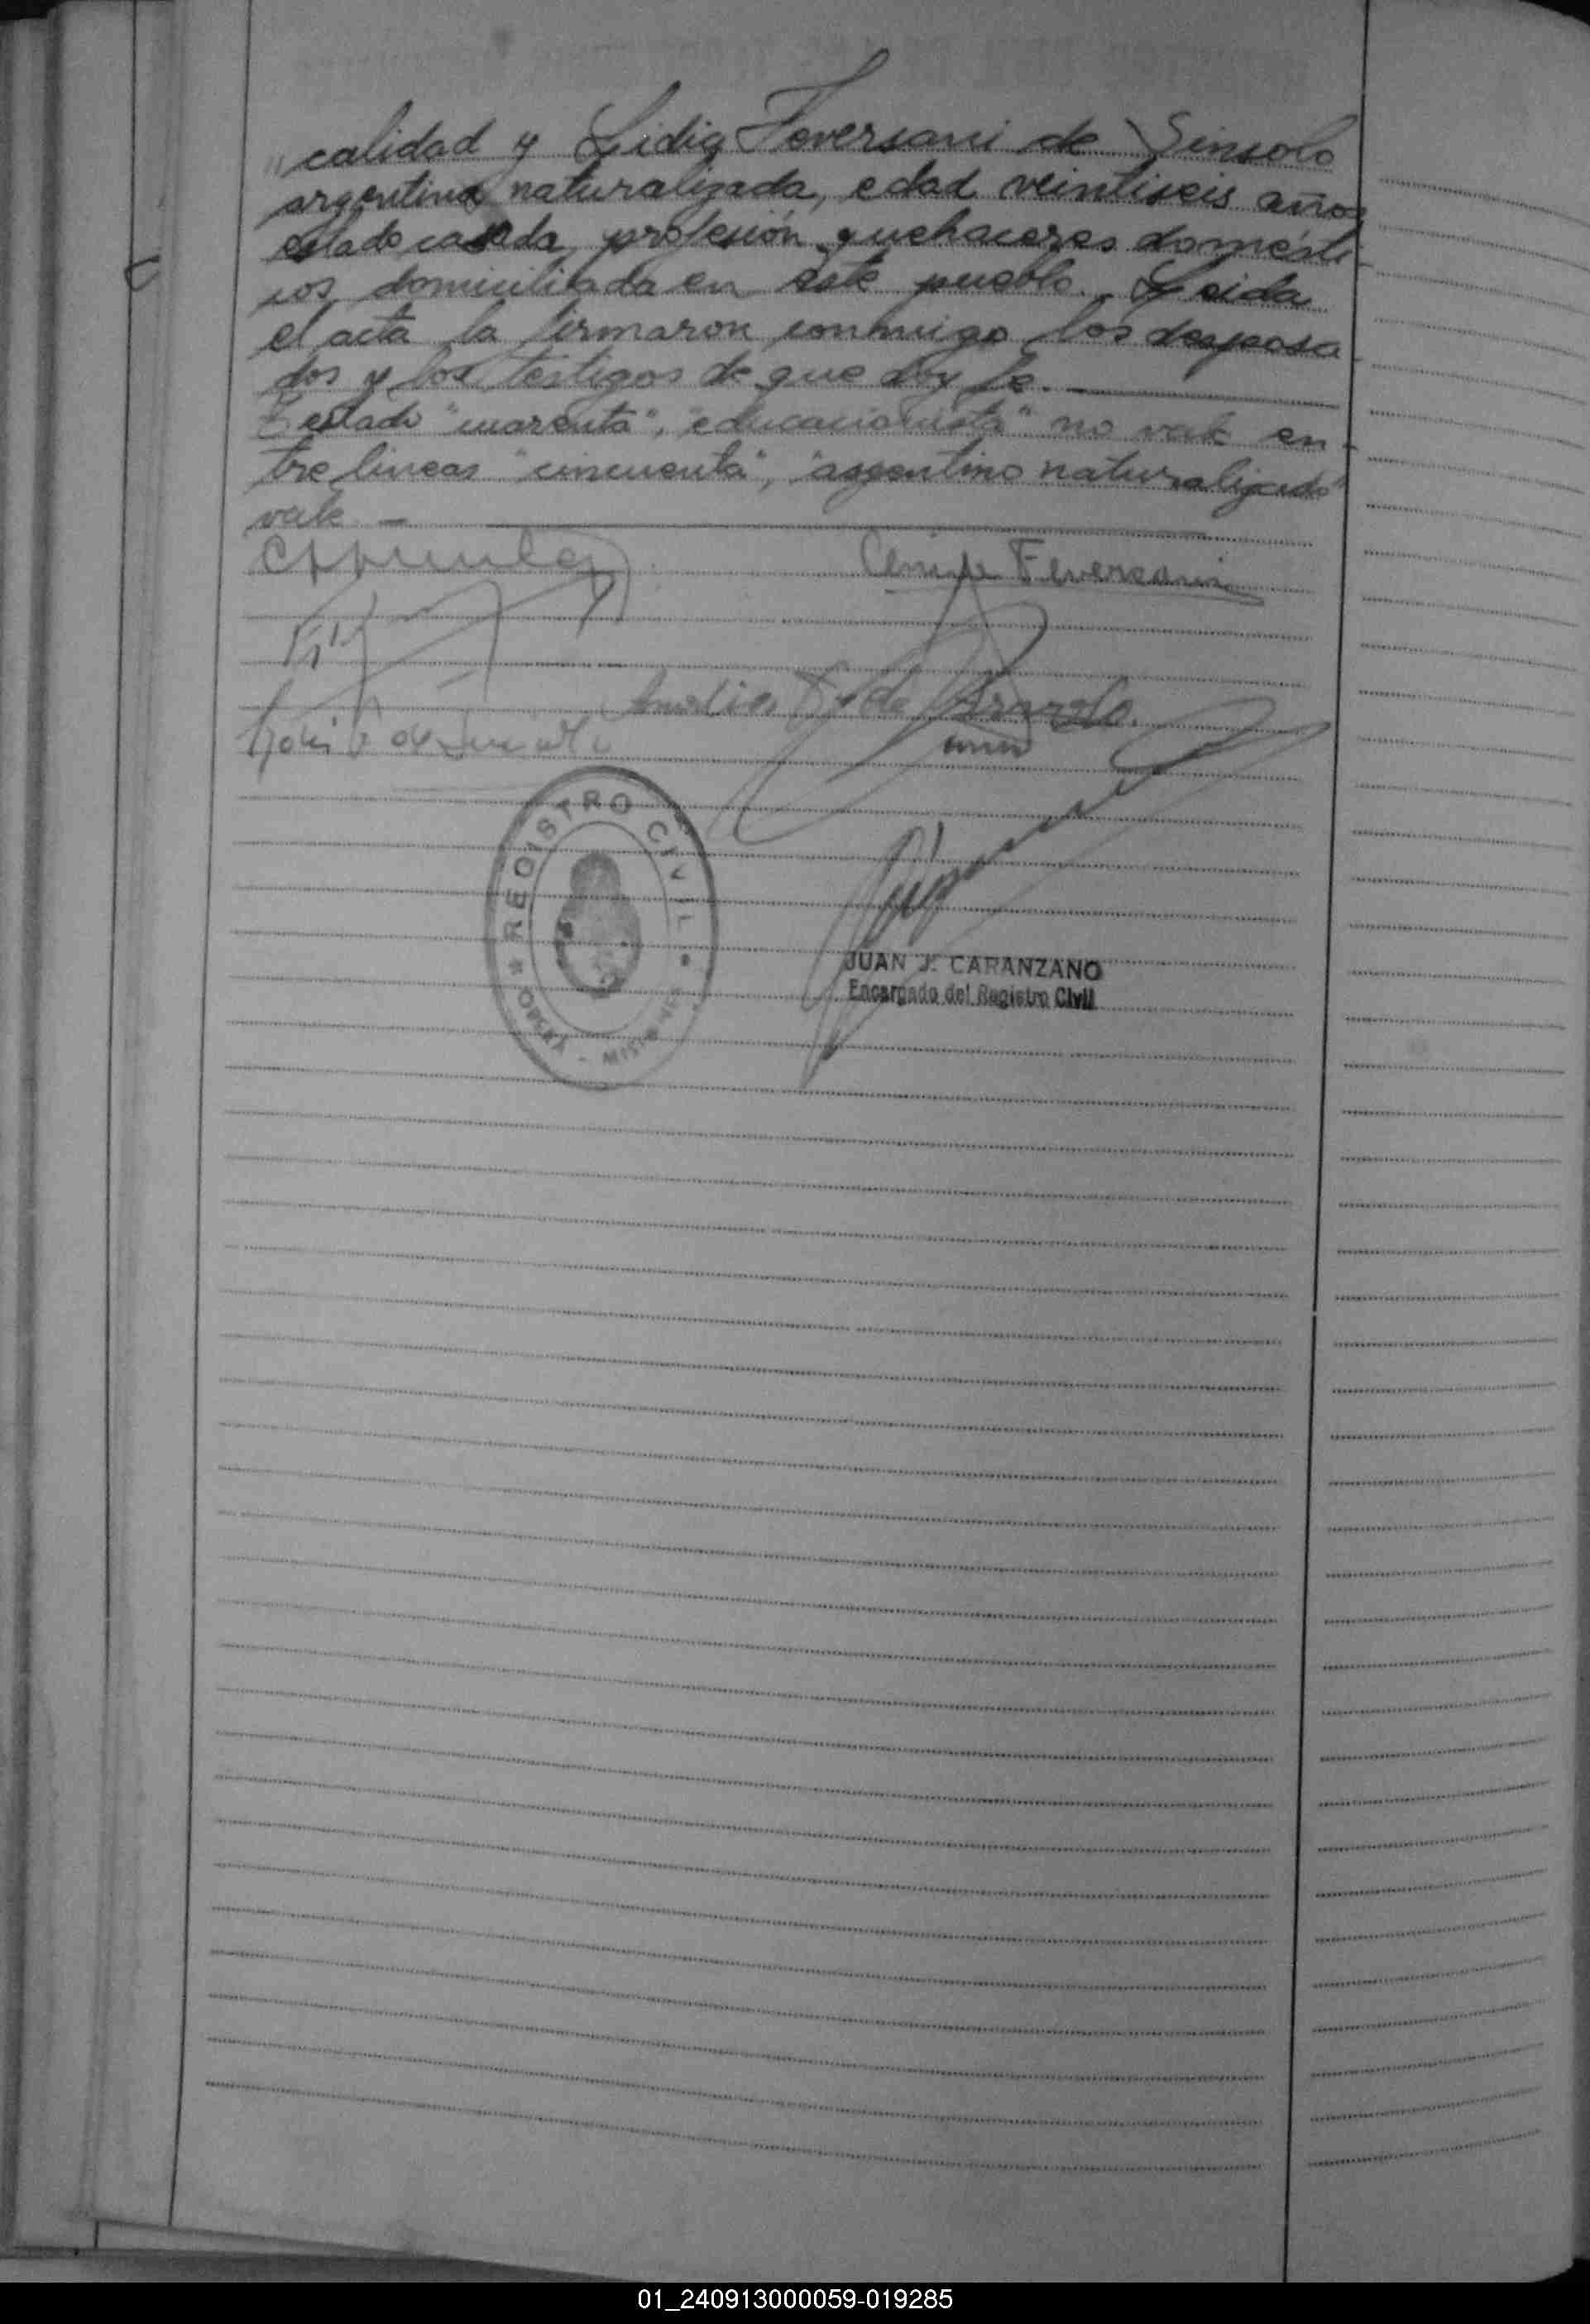 calidad y Lidia Feversani de Sinsolo
argentina naturalizada, edad veintiseis años
estado casada, profesión quehaceres domésti-
cos, domiciliada en este pueblo. Leida
el acta la firmaron conmigo los desposa-
dos y los testigos de que doy fe.
Testado "cuarenta", "educacionista" no vale en-
tre lineas "cincuenta", "argentino naturalizado"
vale -
Feversani
de
REGISTRO CIVIL
OBERA - MISIONES
JUAN J. CARANZANO
Encargado del Registro Civil
01_240913000059-019285